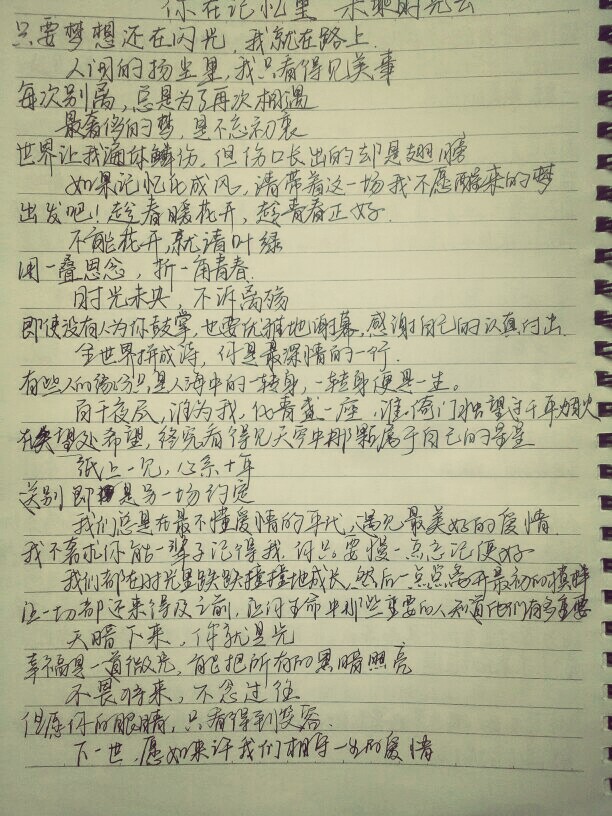 你在记忆里 未聊时光云
只要梦想还在闪光，我就在路上.
人间的扬尘里，我只看得见美事
每次别离，总是为了再次相遇
最奢侈的梦，是不忘初衷
世界让我遍体鳞伤，但伤口长出的却是翅膀
如果记忆化成风，请带着这一场我不愿醒来的梦
出发吧！趁春暖花开，趁青春正好.
不能花开，就请叶绿
用一叠思念，折一角青春.
时光未央，不诉离殇
即使没有人为你鼓掌，也要优雅地谢幕，感谢自己的认真付出.
全世界拼成诗，你是最深情的一行.
有些人的缘分，是人海中的一转身，一转身便是一生。
百千夜尽，谁为我，化青盏一座，谁，倚门独望过千年
在失望处希望，终究看得见天空中那颗属于自己的星星
纸上一见，心系十年
送别即是另一场约定
我们总是在最不懂爱情的年代，遇见最美好的爱情.
我不奢求你能一辈子记得我，你只要慢一点忘记便好
我们都在时光里跌跌撞撞地成长，然后一点点离开最初的模样
这一切都还来得及之前，应付生命中那些重要的人知道他们有多重要
天暗下来，你就是光
幸福是一道微光，能把所有的黑暗照亮
不畏将来，不念过往
但愿你的眼睛，只看得到笑容.
下一世，愿如来许我们相守一生的爱情